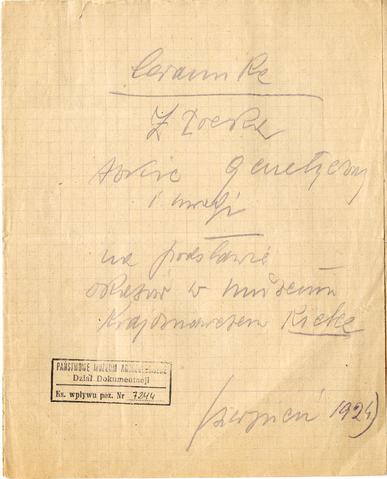 Ceramika
Złocka
szkic genetyczny
i uwagi
na podstawie
okazów w Muzeum
Krajoznawczem Kielce
PAŃSTWOWE MUZEUM ARCHEOLOGICZNE
Dział Dokumentacji
Ks. wpływu poz. Nr 7244
(sierpień 1924)